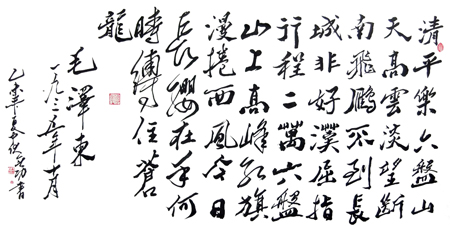 清平樂六盤山
天高雲淡望斷
南飛鴈不到長
城非好漢屈指
行程二萬六盤
山上高峰紅旗
漫捲西風今日
長纓在手何
時縛住蒼
龍
毛澤東
一九三五年十月
乙未年
書